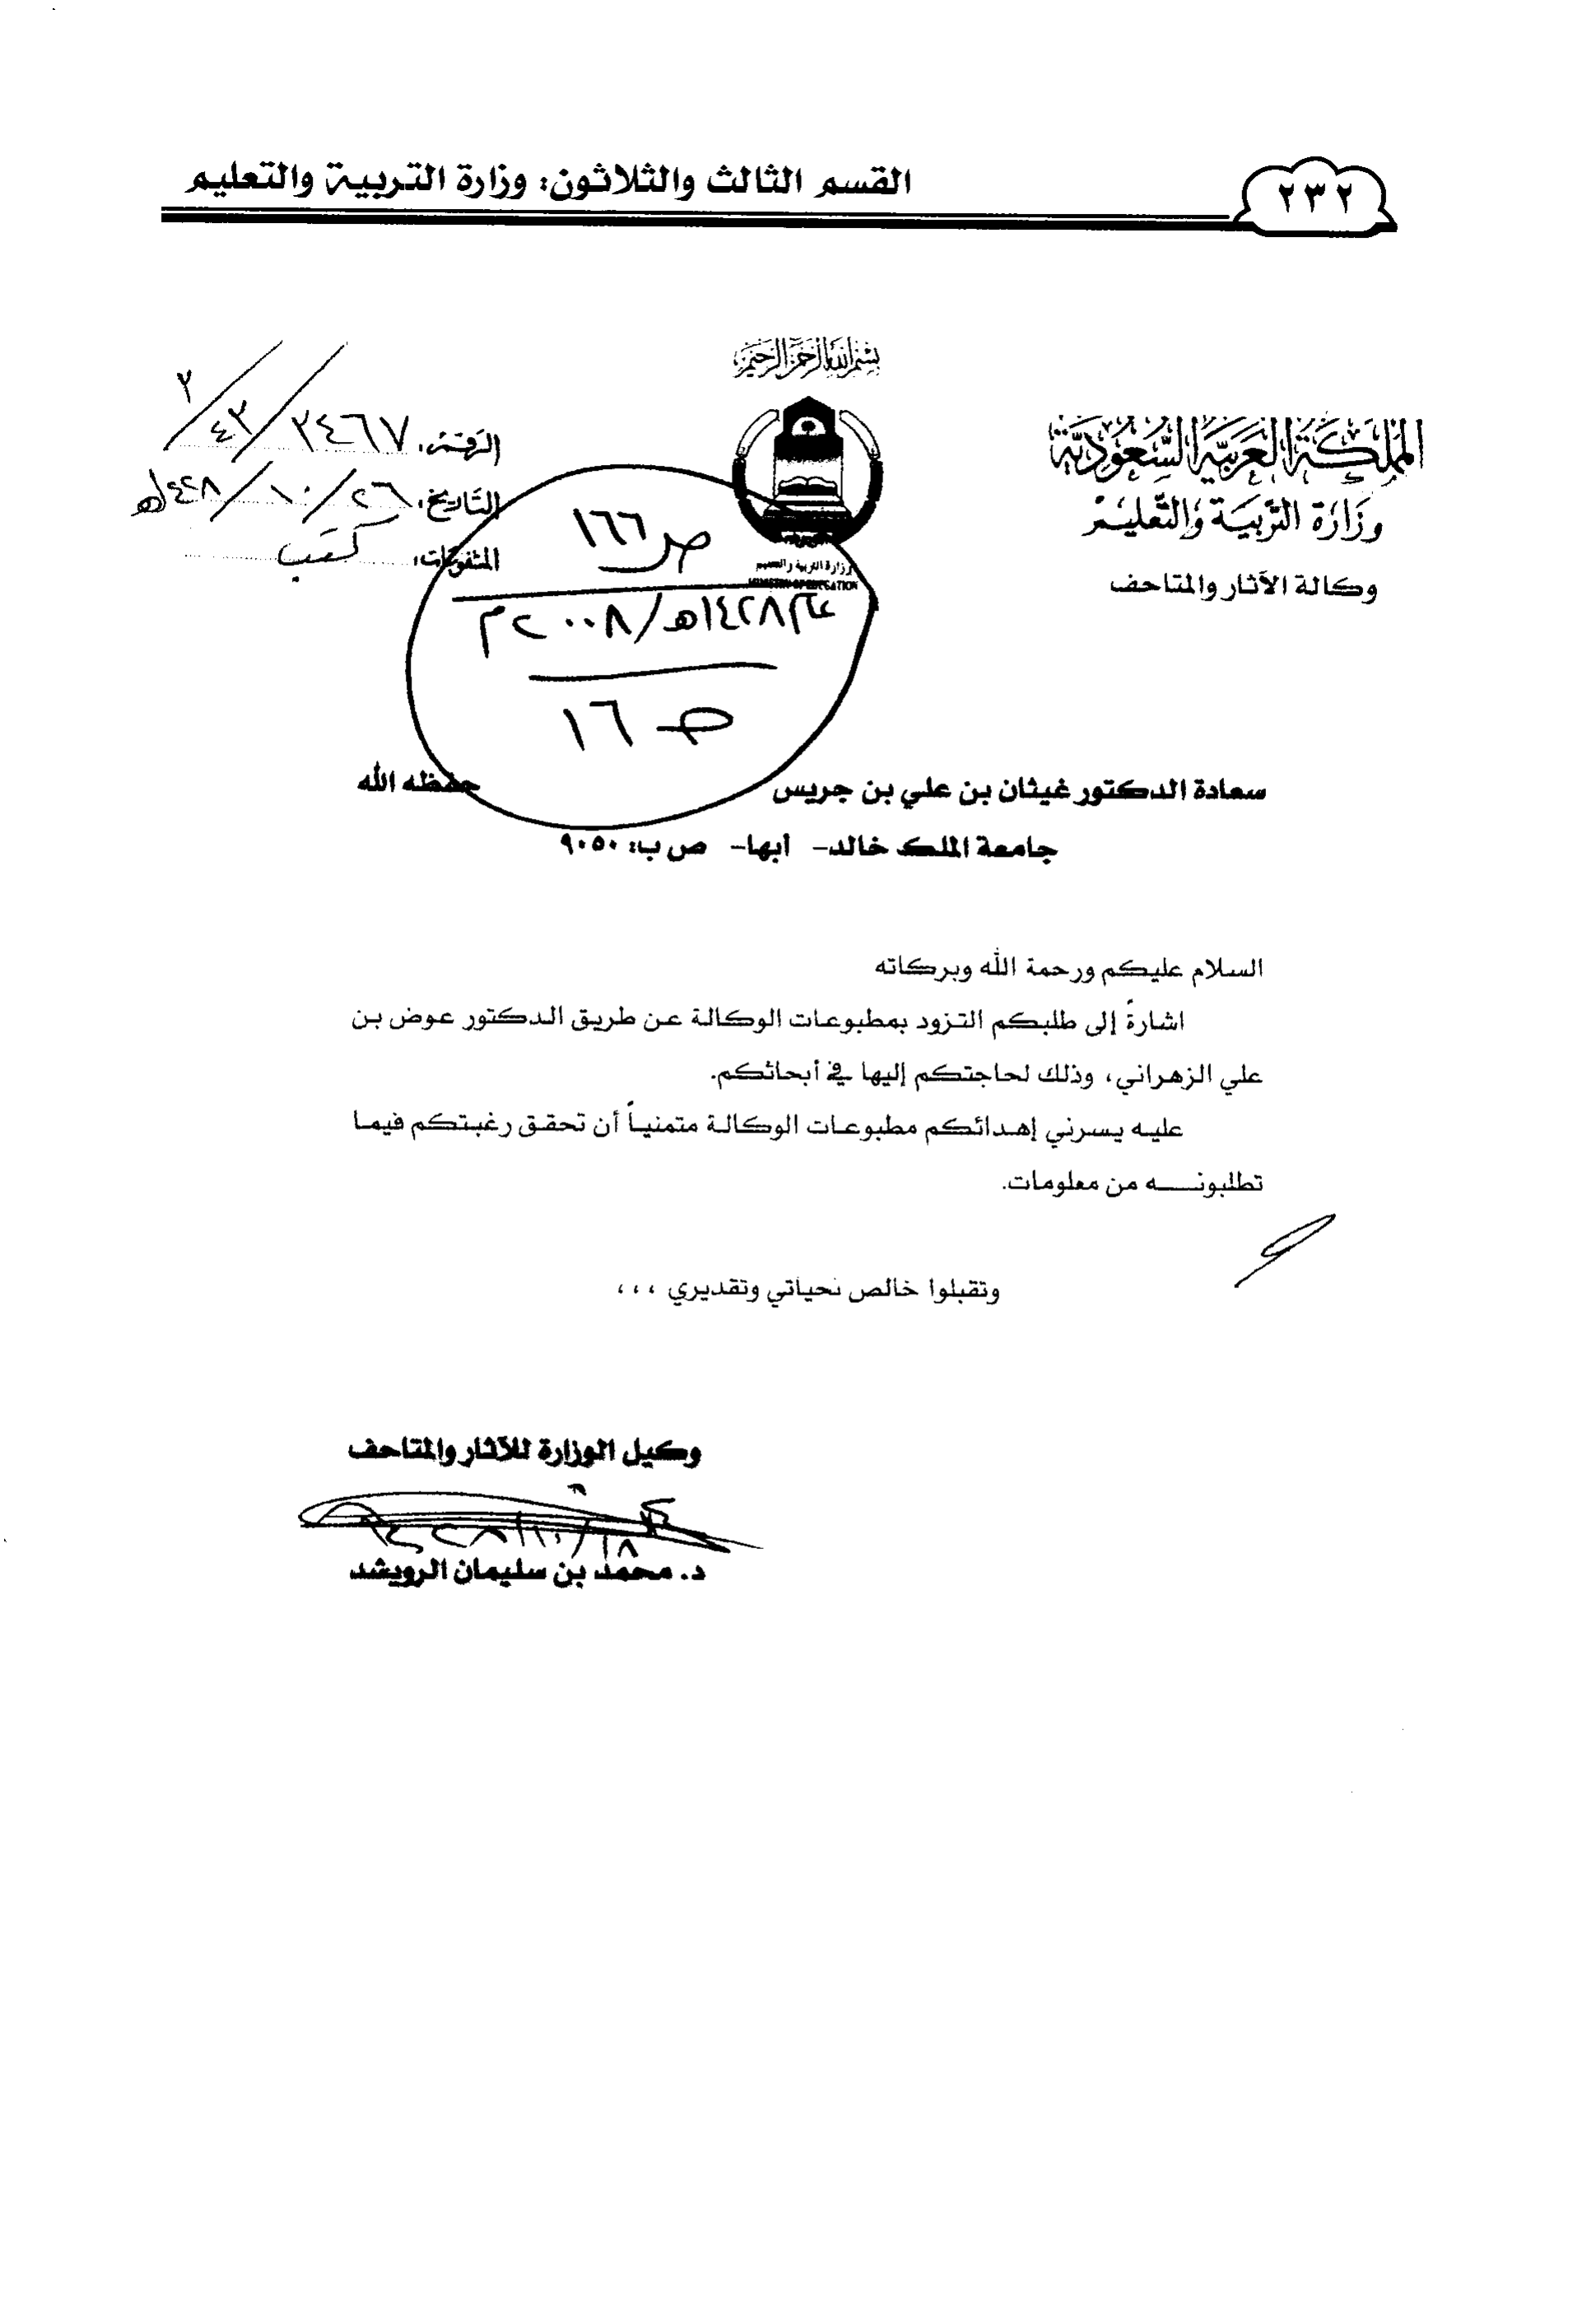 ٢٣٢
القسم الثالث والثلاثون: وزارة التربية والتعليم
بسم الله الرحمن الرحيم
المملكة العربية السعودية
وزارة التربية والتعليم
وكالة الآثار والمتاحف
وزارة التربية والتعليم
MINISTRY OF EDUCATION
الرقم: ٢٤٦٧ / ٤٣ / ٢
التاريخ: ٢٦ / ١٠ / ١٤٢٨هـ
المشفوعات: كتب
ص ١٦٦
١٤٢٨هـ/٢٠٠٨م
١٦
سعادة الدكتور غيثان بن علي بن جريس حفظه الله
جامعة الملك خالد- أبها- ص ب: ٩٠٥٠
السلام عليكم ورحمة الله وبركاته
اشارةً إلى طلبكم التزود بمطبوعات الوكالة عن طريق الدكتور عوض بن
علي الزهراني، وذلك لحاجتكم إليها في أبحاثكم.
عليه يسرني إهدائكم مطبوعات الوكالة متمنياً أن تحقق رغبتكم فيما
تطلبونـــه من معلومات.
وتقبلوا خالص تحياتي وتقديري ،،،
وكيل الوزارة للآثار والمتاحف
د. محمد بن سليمان الرويشد